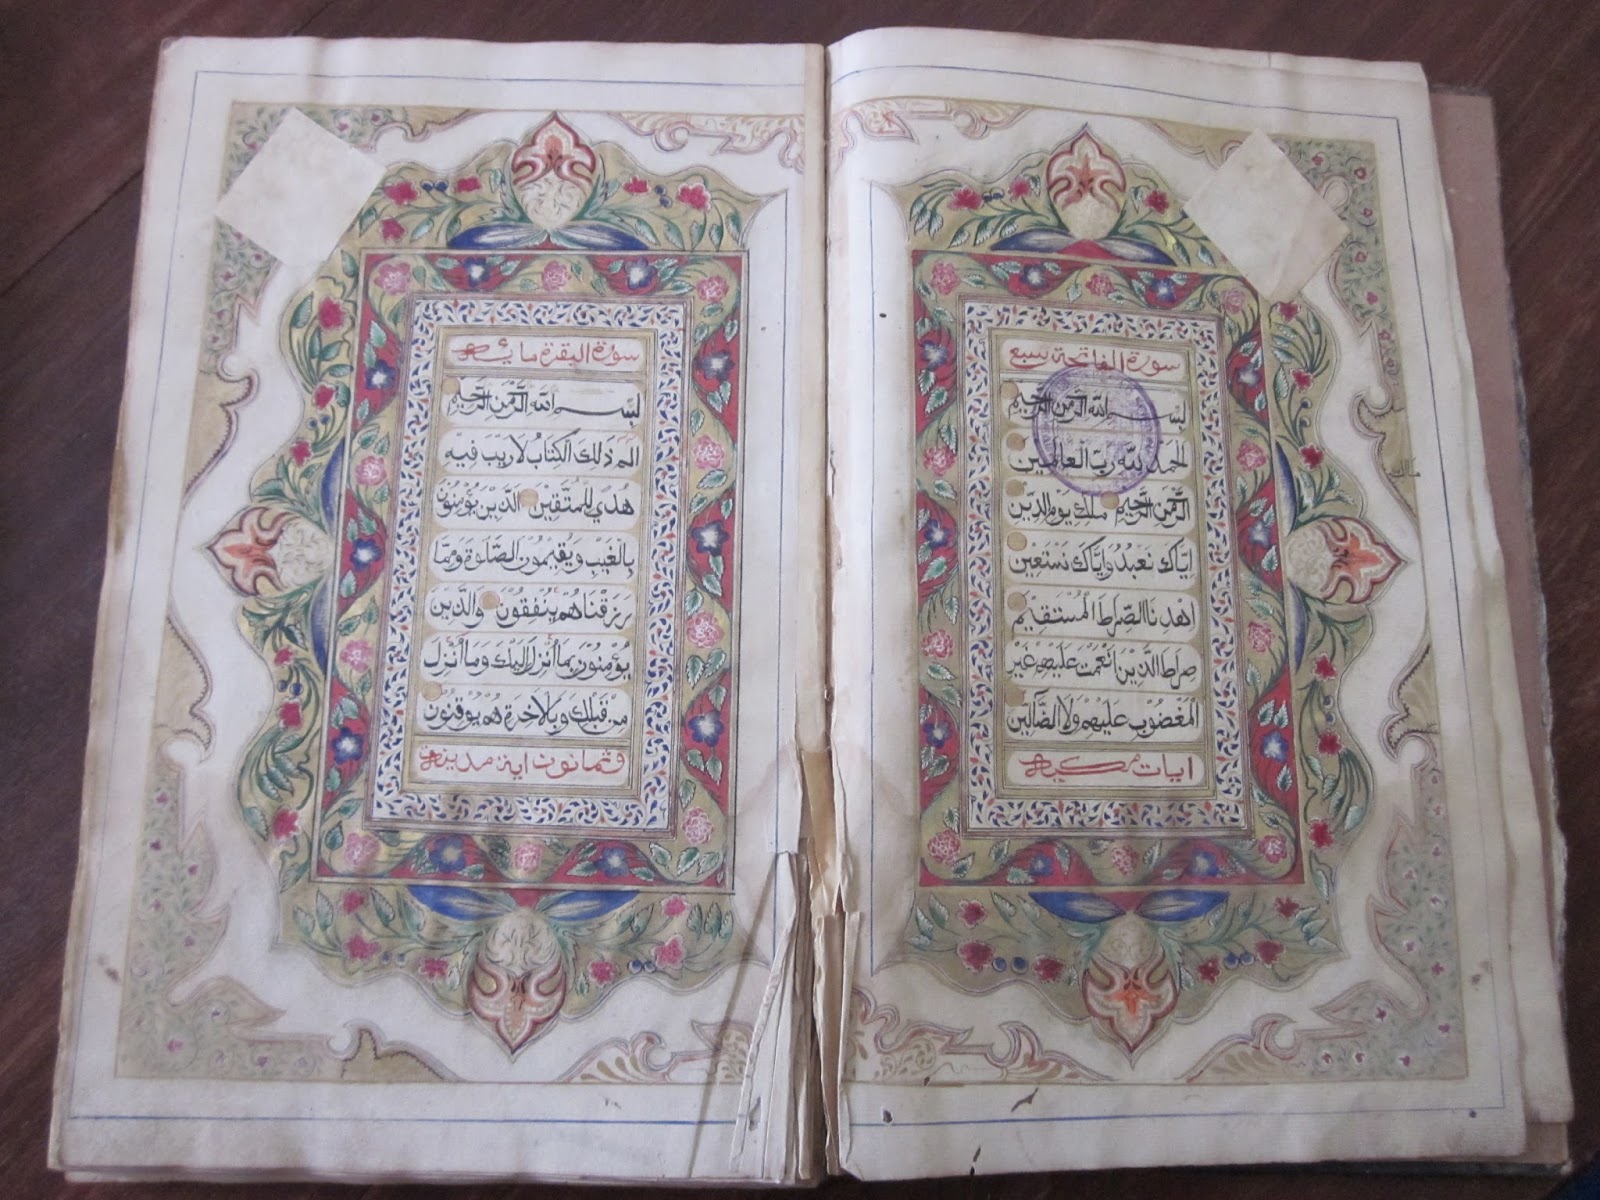 سورة الفاتحة سبع
بسم الله الرحمن الرحيم
الحمد لله رب العالمين
الرحمن الرحيم ملك يوم الدين
اياك نعبد واياك نستعين
اهدنا الصراط المستقيم
صراط الذين انعمت عليهم غير
المغضوب عليهم ولا الضالين
ايات مكية
سورة البقرة مائة
بسم الله الرحمن الرحيم
الم ذلك الكتاب لا ريب فيه
هدى للمتقين الذين يؤمنون
بالغيب ويقيمون الصلوة ومما
رزقناهم ينفقون والذين
يؤمنون بما أنزل اليك وما أنزل
من قبلك وبالاخرة هم يوقنون
وثمانون اية مدينة